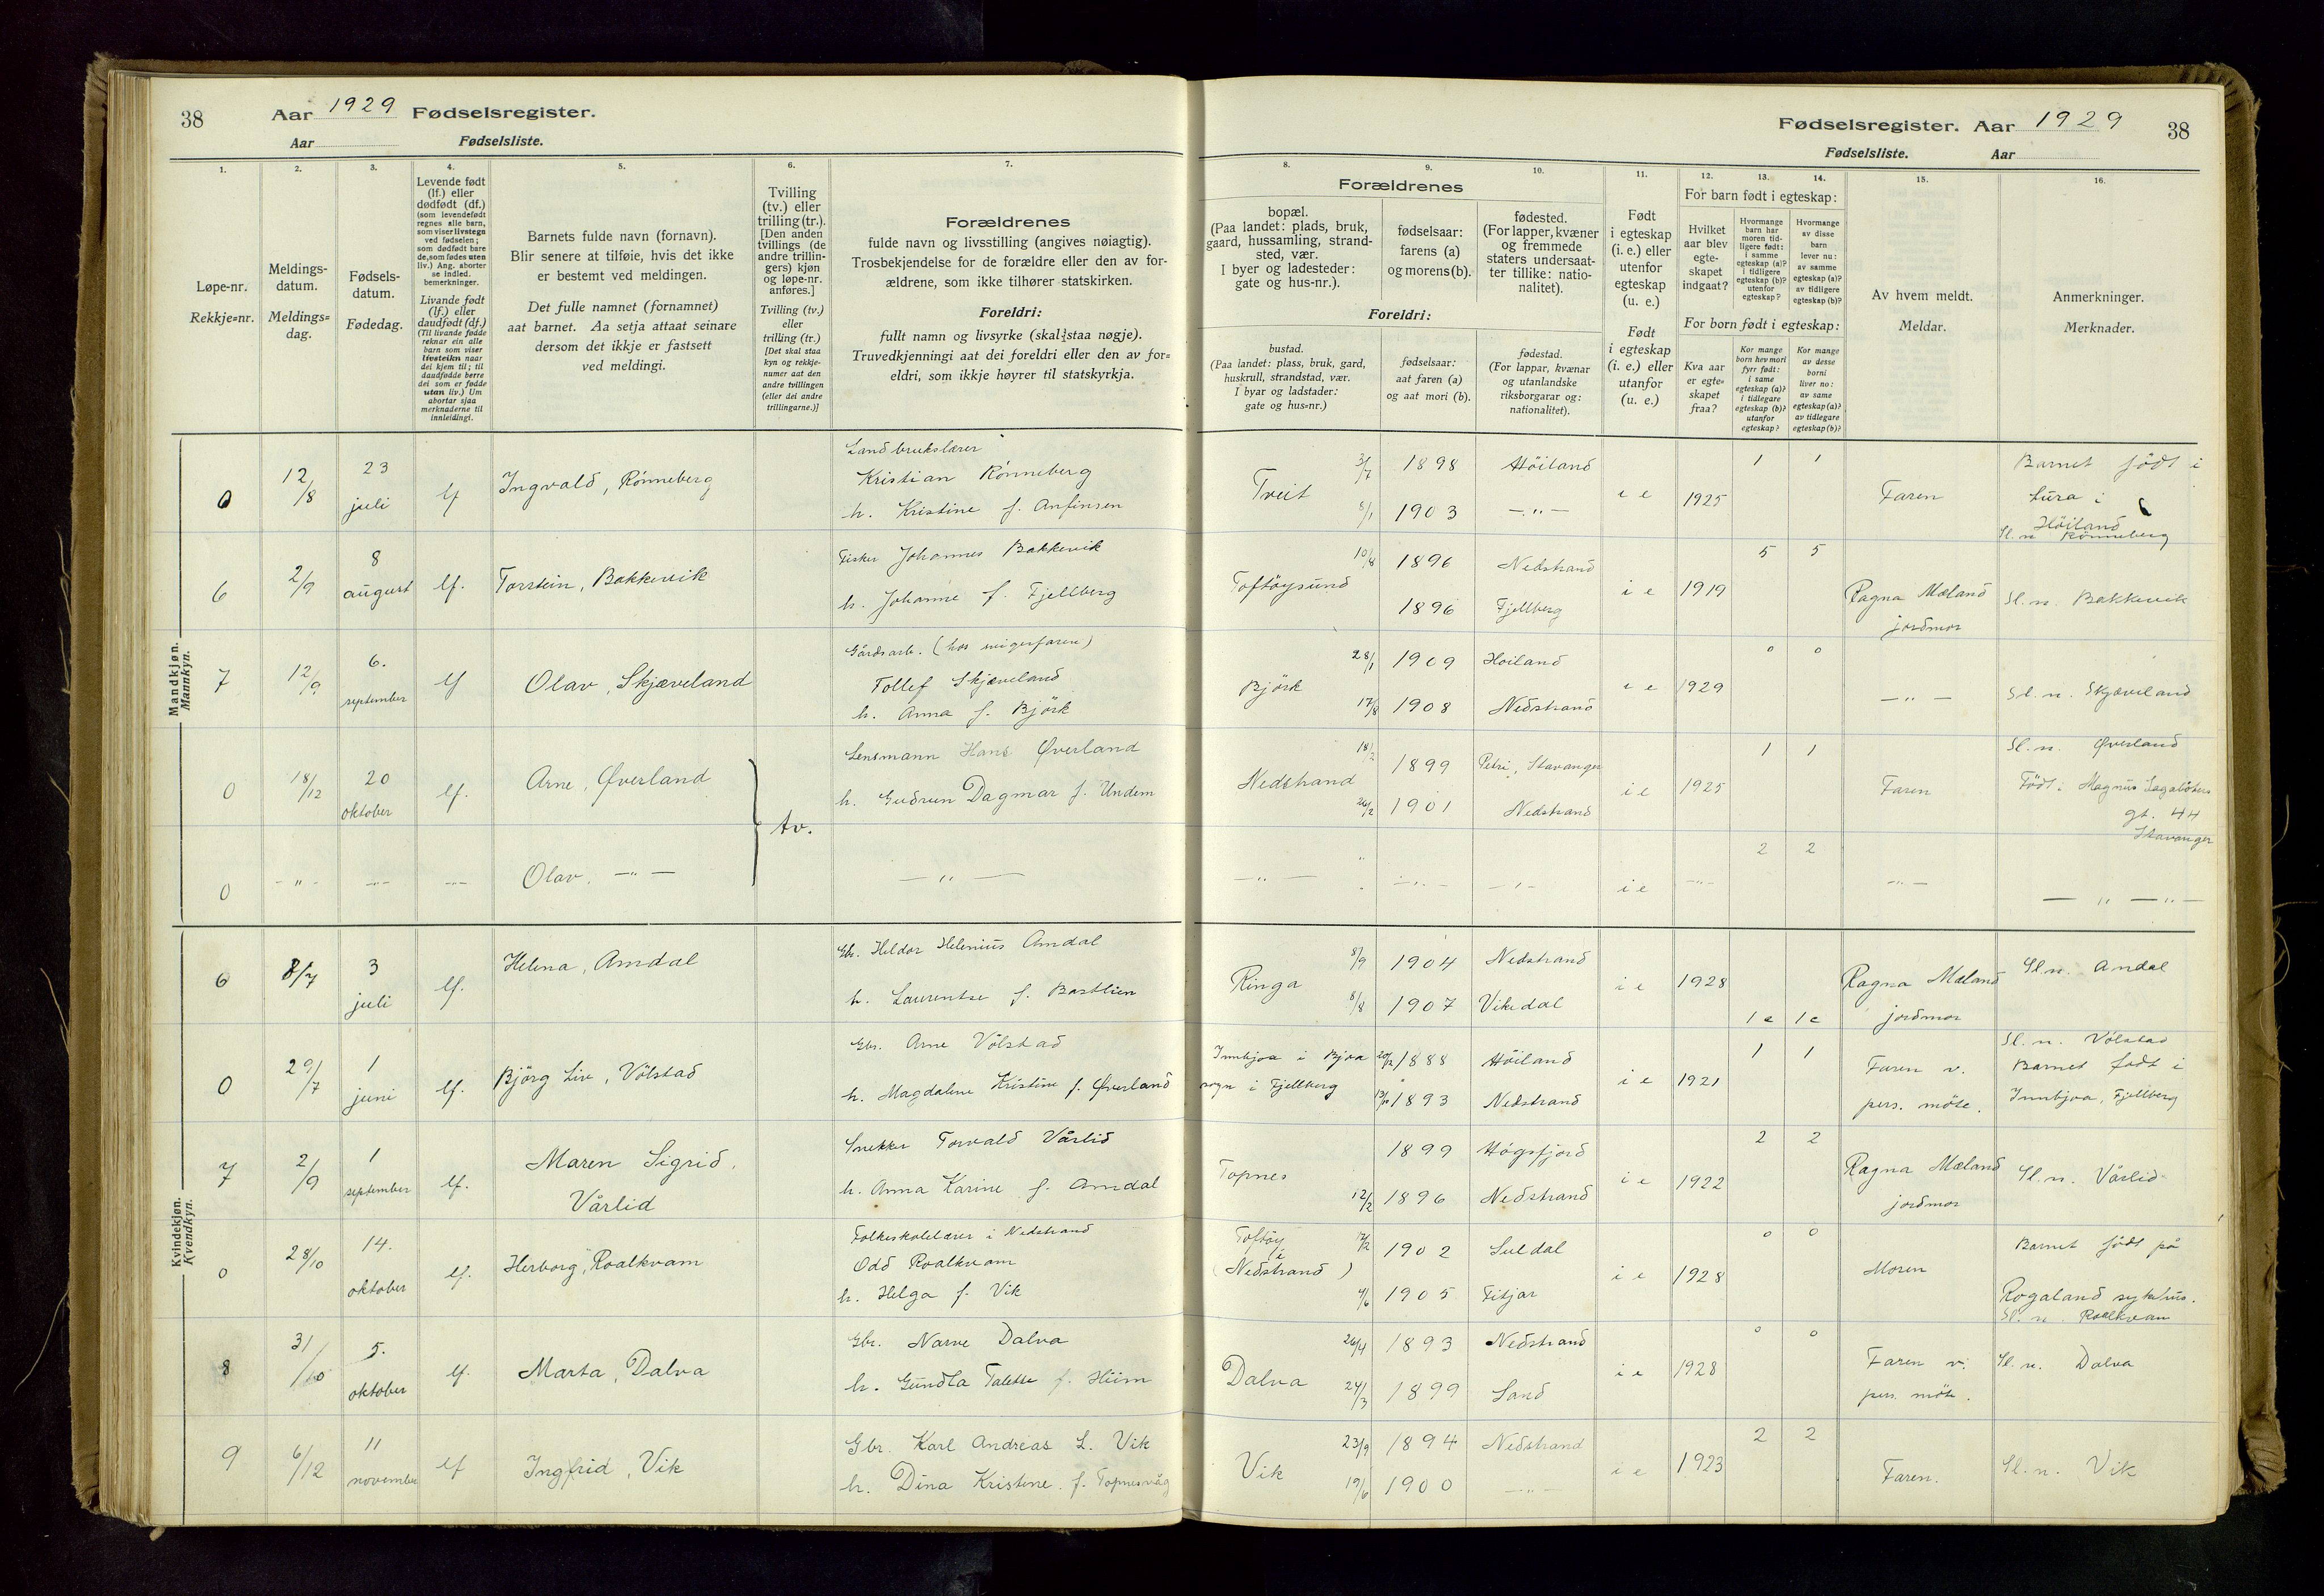 38
Aar 1929 Fødselsregister.
Aar Fødselsliste.
1.
2.
3.
4.
5.
6.
7.
Løpe-nr.
Rekkje=nr.
Meldings-
datum.
Meldings=
dag.
Fødsels-
datum.
Fødedag.
Levende født
(lf.) eller
dødfødt (df.)
(som levendefødt
regnes alle barn,
som viser livstegn
ved fødselen;
som dødfødt bare
de, som fødes uten
liv.) Ang. aborter
se indled.
bemerkninger.
Livande født
(lf.) eller
daudfødt (df.)
(Til livande fødde
reknar ein alle
barn som viser
livsteikn naar
dei kjem til; til
daudfødde berre
dei som er fødde
utan liv.) Um
abortar sjaa
merknaderne til
innleidingi.
Barnets fulde navn (fornavn).
Blir senere at tilføie, hvis det ikke
er bestemt ved meldingen.
Det fulle namnet (fornamnet)
aat barnet. Aa setja attaat seinare
dersom det ikkje er fastsett
ved meldingi.
Tvilling
(tv.) eller
trilling (tr.).
[Den anden
tvillings (de
andre trillin-
gers) kjøn
og løpe-nr.
anføres.]
Tvilling (tv.)
eller
trilling (tr.)
[Det skal staa
kyn og rekkje-
numer aat den
andre tvillingen
(eller dei andre
trillingarne.)]
Forældrenes
fulde navn og livsstilling (angives nøiagtig).
Trosbekjendelse for de forældre eller den av for-
ældrene, som ikke tilhører statskirken.
Foreldri:
fullt namn og livsyrke (skal staa nøgje).
Truvedkjenningi aat dei foreldri eller den av for=
eldri, som ikkje høyrer til statskyrkja.
Mandkjøn.
Mannkyn.
0 12/8 23 juli lf Ingvald, Rönneberg
Landbrukslærer
Kristian Rönneberg
h. Kristine f. Anfinsen
6 2/9 8 august lf. Torstein, Bakkevik
Fisker Johannes Bakkevik
h. Johanne f. Fjellberg
7 12/9 6. september lf Olav, Skjæveland
Gårdsarb. (hos svigerfaren)
Tollef Skjæveland
h. Anna f. Björk
0 18/12 20 oktober lf. Arne, Øverland
tv.
Lensmann Hans Øverland
h. Gudrun Dagmar f. Undem
0 -"- -"- -"- Olav. -"-
-"-
Kvindekjøn.
Kvendkyn.
6 8/7 3 juli lf. Helena, Amdal
Gbr. Heldor Helenius Amdal
h. Laurentse f. Bastlien
0 29/7 1 juni lf. Björg Liv, Völstad
Gbr. Arne Völstad
h. Magdalene Kristine f. Øverland
7 2/9 1 september lf. Maren Sigrid,
Vårlid
Snekker Torvald Vårlid
h. Anna Karine f. Amdal
0 28/10 14. oktober lf. Herborg, Roalkvam
Folkeskolelærer i Nedstrand
Odd Roalkvam
h. Helga f. Vik
8 31/10 5. oktober lf. Marta, Dalva
Gbr. Narve Dalva
h. Gundla Talette f. Hiim
9 6/12 11 november lf Ingfrid, Vik
Gbr. Karl Andreas L. Vik
h. Dina Kristine. f. Topnesvåg
Fødselsregister. Aar 1929 38
Fødselsliste. Aar
8.
9.
10.
11.
12.
13.
14.
15.
16.
Forældrenes
bopæl.
(Paa landet: plads, bruk,
gaard, hussamling, strand-
sted, vær.
I byer og ladesteder:
gate og hus-nr.).
fødselsaar:
farens (a)
og morens (b).
fødested.
(For lapper, kvæner
og fremmede
staters undersaat-
ter tillike: natio-
nalitet).
Foreldri:
bustad.
(Paa landet: plass, bruk, gard,
huskrull, strandstad, vær.
I byar og ladstader:
gate og hus=nr.)
fødselsaar:
aat faren (a)
og aat mori (b).
fødestad.
(For lappar, kvænar
og utanlandske
riksborgarar og:
nationalitet).
Født
i egteskap
(i. e.) eller
utenfor
egteskap
(u. e.)
Født
i egteskap
(i. e.) eller
utanfor
(u. e.)
For barn født i egteskap:
Hvilket
aar blev
egte-
skapet
indgaat?
Hvormange
barn har
moren tid-
ligere født:
i samme
egteskap (a)?
i tidligere
egteskap (b)?
utenfor
egteskap?
Hvormange
av disse
barn
lever nu:
av samme
egteskap (a)?
av tidligere
egteskap (b)?
For born født i egteskap:
Kva aar
er egte=
skapet
fraa?
Kor mange
born hev mori
fyrr født:
i same
egteskap (a)?
i tidlegare
egteskap (b)?
utanfor
egteskap?
Kor mange
av desse
borni
liver no:
av same
egteskap (a)?
av tidlegare
egteskap (b)?
Av hvem meldt.
Meldar.
Anmerkninger.
Merknader.
Tveit 3/7 1898 Höiland
8/1 1903 -"-
i e 1925 1 1 Faren
Barnet födt i
tura i
Höiland
Sl. n Rönneberg
Toftöysund 10/8 1896 Nedstrand
1896 Fjellberg
i e 1919 5 5 Ragna Mæland
jordmor
Sl. n. Bakkevik
Björk 28/1 1909 Höiland
17/8 1908 Nedstrand
i e 1929 0 0 -"-
Sl. n. Skjæveland
Nedstrand 18/2 1899 Petri, Stavanger
26/2 1901 Nedstrand
i e 1925 1 1 Faren
Sl. n. Øverland
Födt i Magnus Lagaböters
gt. 44
Stavanger
-"- -"- -"- i e -"- 2 2 -"- -"-
Ringa 8/9 1904 Nedstrand
8/8 1907 Vikedal
i e 1928 1 e 1 e Ragna Mæland
jordmor
Sl. n. Amdal
Innbjoa i Bjoa
sogn i Fjellberg
20/12 1888 Höiland
13/10 1893 Nedstrand
i e 1921 1 1 Faren v.
pers. möte.
Sl. n. Völstad
Barnet födt i
Innbjoa, Fjellberg
Topnes 1899 Högsfjord
12/2 1896 Nedstrand
i e 1922 2 2 Ragna Mæland
jordmor
Sl. n. Vårlid
Toftöy
i
(Nedstrand)
17/2 1902 Suldal
4/6 1905 Fitjar
i e 1928 0 0 Moren
Barnet födt på
Rogaland sykehus.
Sl. n. Roalkvam
Dalva 26/4 1893 Nedstrand
24/3 1899 Sand
i e 1928 0 0 Faren v.
pers. möte.
Sl. n. Dalva
Vik 23/9 1894 Nedstrand
19/6 1900 -"-
i e 1923 2 2 Faren.
Sl. n. Vik